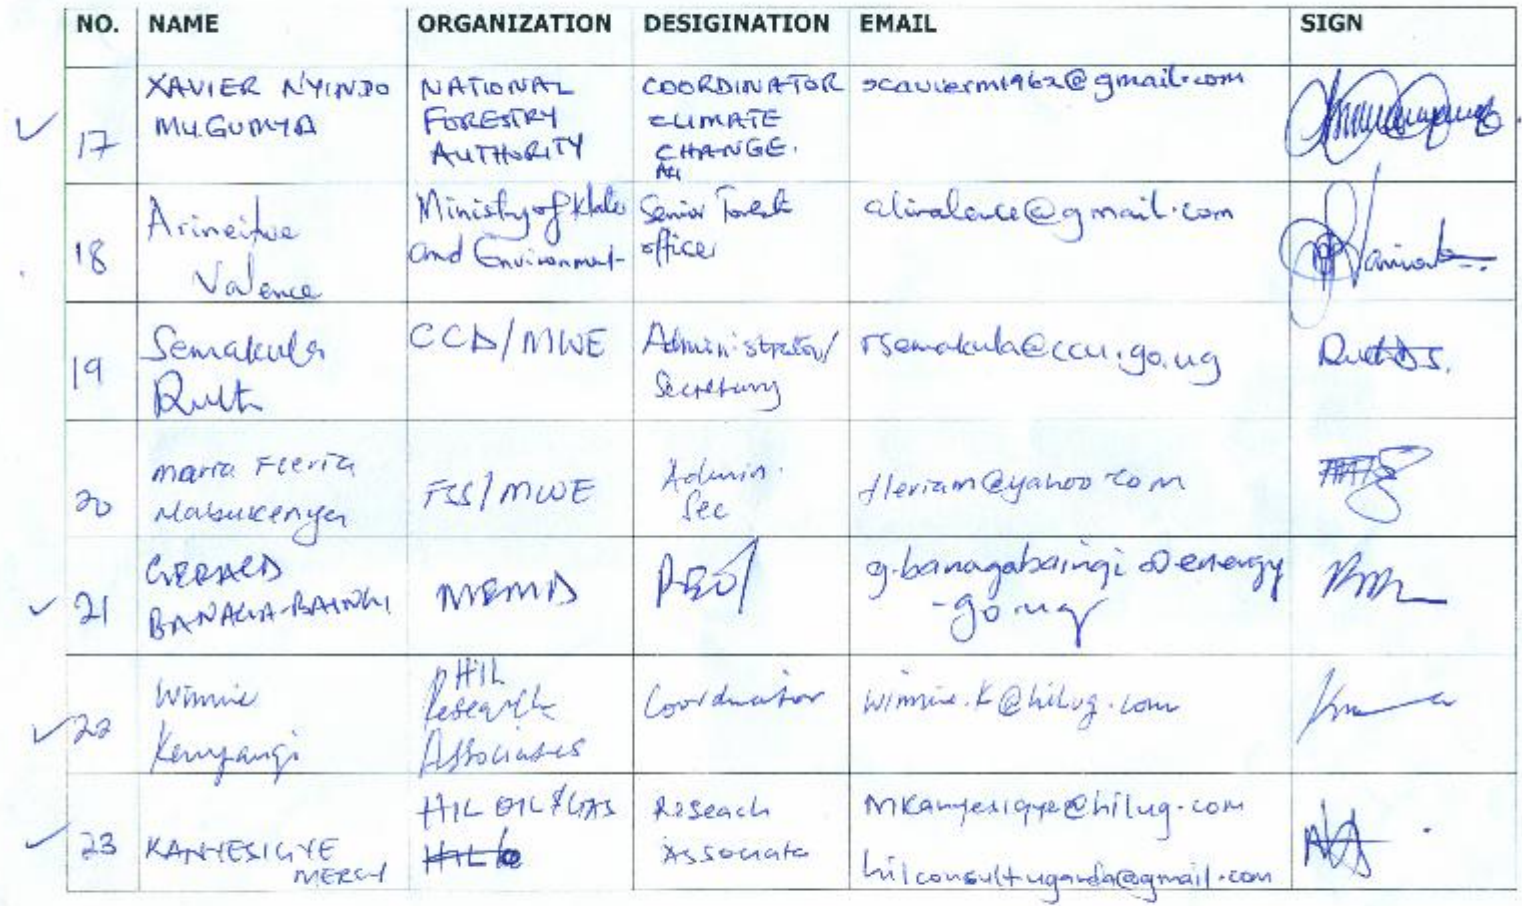 NO. NAME ORGANIZATION DESIGINATION EMAIL SIGN
17 XAVIER NYINDO MUGUMYA NATIONAL FORESTRY AUTHORITY COORDINATOR CLIMATE CHANGE. xcavierm1962@gmail.com
18 Arineitwe Valence Ministry of Water and Environment Senior Forest officer alivalence@gmail.com
19 Semakula Ruth CCD/MWE Administrator/ Secretary rsemakula@ccu.go.ug
20 Maria Fleria Nabukenya FSS/MWE Admin. Sec fleriam@yahoo.com
21 GERALD BANAGA-BAINGI MEMD PEO/ g.banagabaingi@energy .go.ug
22 Winnie Kenyangi HIL Research Associates Coordinator winnie.k@hilug.com
23 KANYESIGYE MERCY HIL OIL & GAS HIL Reseach Associate mkanyesigye@hilug.com hilconsultuganda@gmail.com